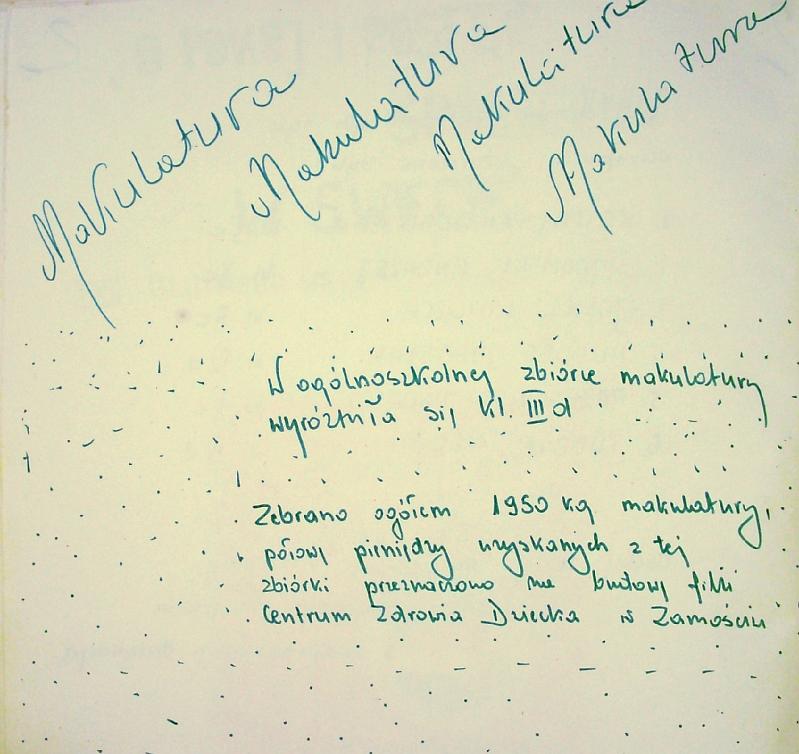 Makulatura
Makulatura
Makulatura
Makulatura
W ogólnoszkolnej zbiórce makulatury
wyróżniła się kl. III d
Zebrano ogółem 1950 kg makulatury,
połowę pieniędzy uzyskanych z tej
zbiórki przeznaczono na budowę filii
Centrum Zdrowia Dziecka w Zamościu